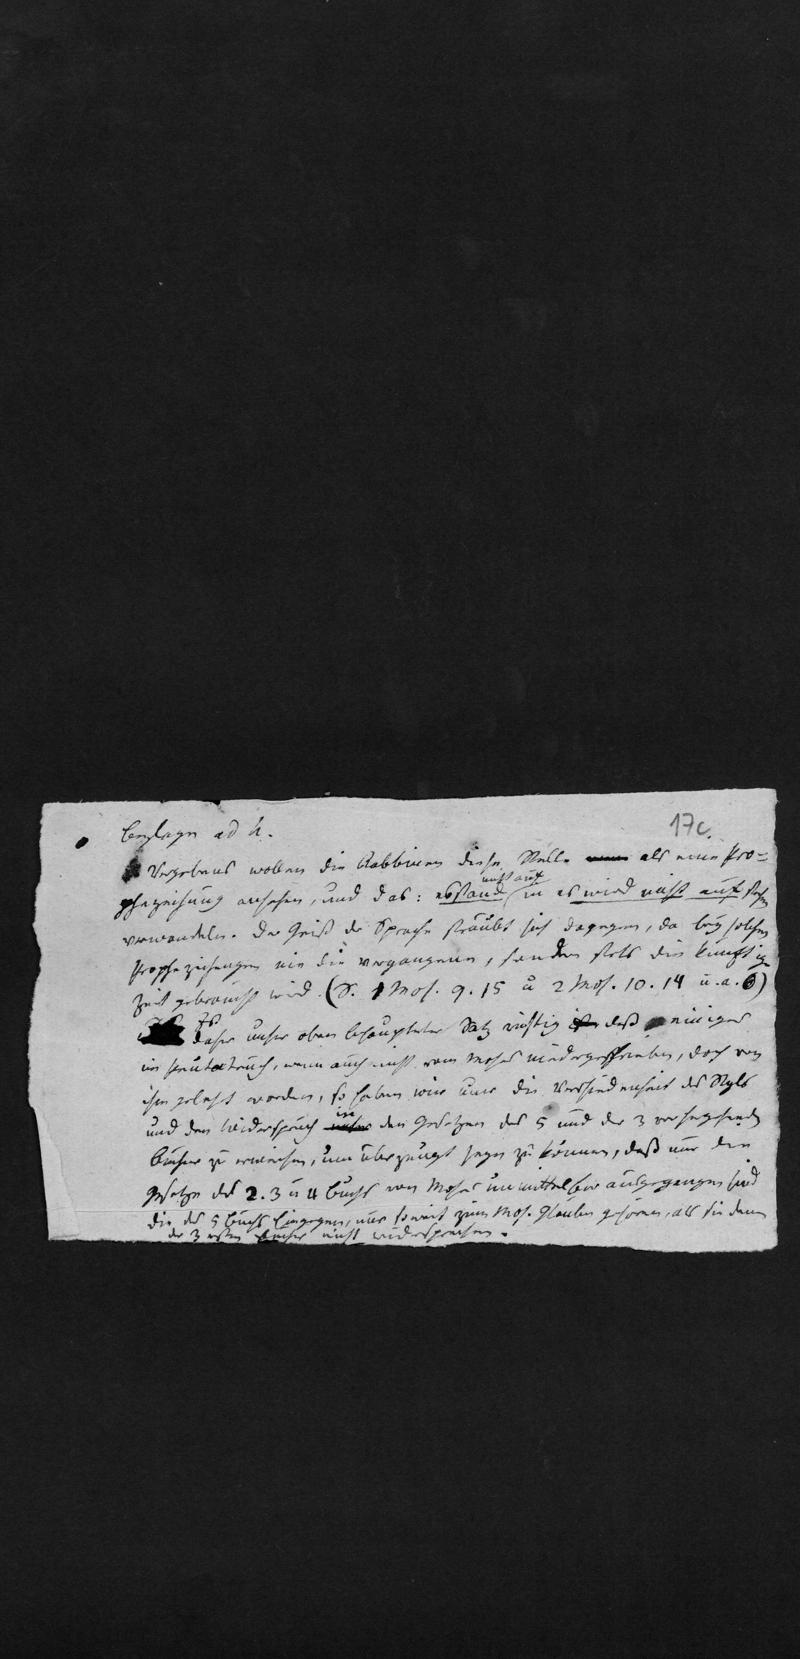 17c.
Beylage ad h.
Vergebens wollen die Rabbinen diese Stelle als eine Pro-
phezeihung ansehen, und das: es stand nicht auf in es wird nicht auf stehen
verwandeln. Der Geist der Sprache sträubt sich dagegen, da bey solchen
Prophezeihungen nie die vergangene, sondern stets die künftige
Zeit gebraucht wird. (S. 1 Mos. 9. 15 u 2 Mos. 10. 14 u. a. O)
Ist daher unser oben behaupteter Satz richtig daß einiges
im Pentateuch, wenn auch nicht vom Moses niedergeschrieben, doch von
ihm gelehrt worden, so haben wir nur die Verschiedenheit des Styls
und den Widerspruch in den Gesetzen des 5 und der 3 vorhergehenden
Bücher zu erweisen, um überzeugt seyn zu können, daß nur die
Gesetze des 2. 3 u 4 Buchs von Moses unmittelbar ausgegangen sind
die des 5 Buchs hingegen, nur so weit zum Mos. Glauben gehören, als sie denen
der 3 ersten Bücher nicht widersprechen.